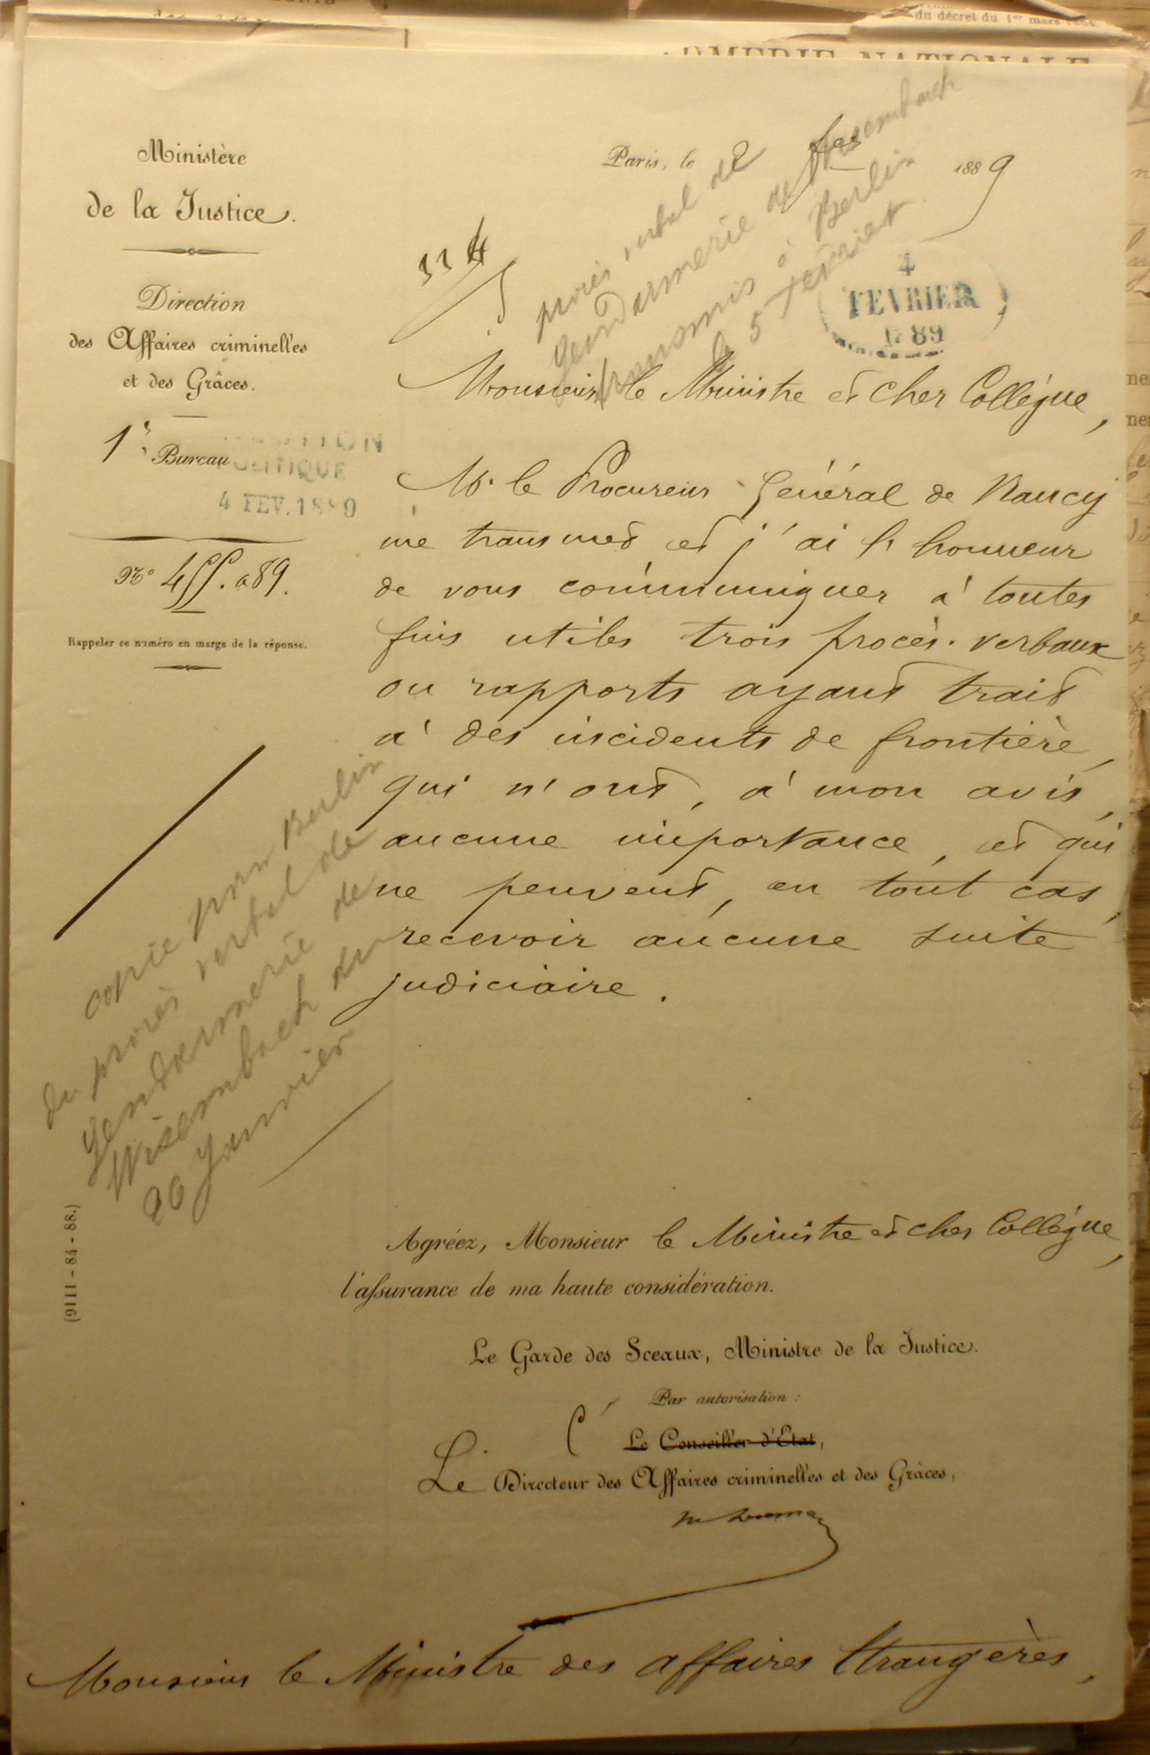 du décret du 1er mars 1854.
Ministère
de la Justice.
Direction
des Affaires criminelles
et des Grâces.
1er Bureau
POLITIQUE
4 FEV. 1889
No 455. a 89.
Rappeler ce numéro en marge de la réponse.
Paris, le 2 1889
procès verbal de
Gendarmerie de Wisembach
transmis à Berlin
le 5 février
4
FEVRIER
89
Monsieur le Ministre et cher Collègue,
M. le Procureur Général de Nancy
me transmet et j'ai l'honneur
de vous communiquer à toutes
fins utiles trois procès-verbaux
ou rapports ayant trait
à des incidents de frontière,
qui n'ont, à mon avis,
aucune importance, et qui
ne peuvent, en tout cas,
recevoir aucune suite
judiciaire.
copie pour Berlin
du procès verbal de
Gendarmerie de
Wisembach du
26 Janvier
(9111-84-88.)
Agréez, Monsieur le Ministre et cher Collègue,
l'assurance de ma haute considération.
Le Garde des Sceaux, Ministre de la Justice.
Par autorisation :
Le Conseiller d'Etat,
Le Directeur des Affaires criminelles et des Grâces,
Monsieur le Ministre des affaires Etrangères,